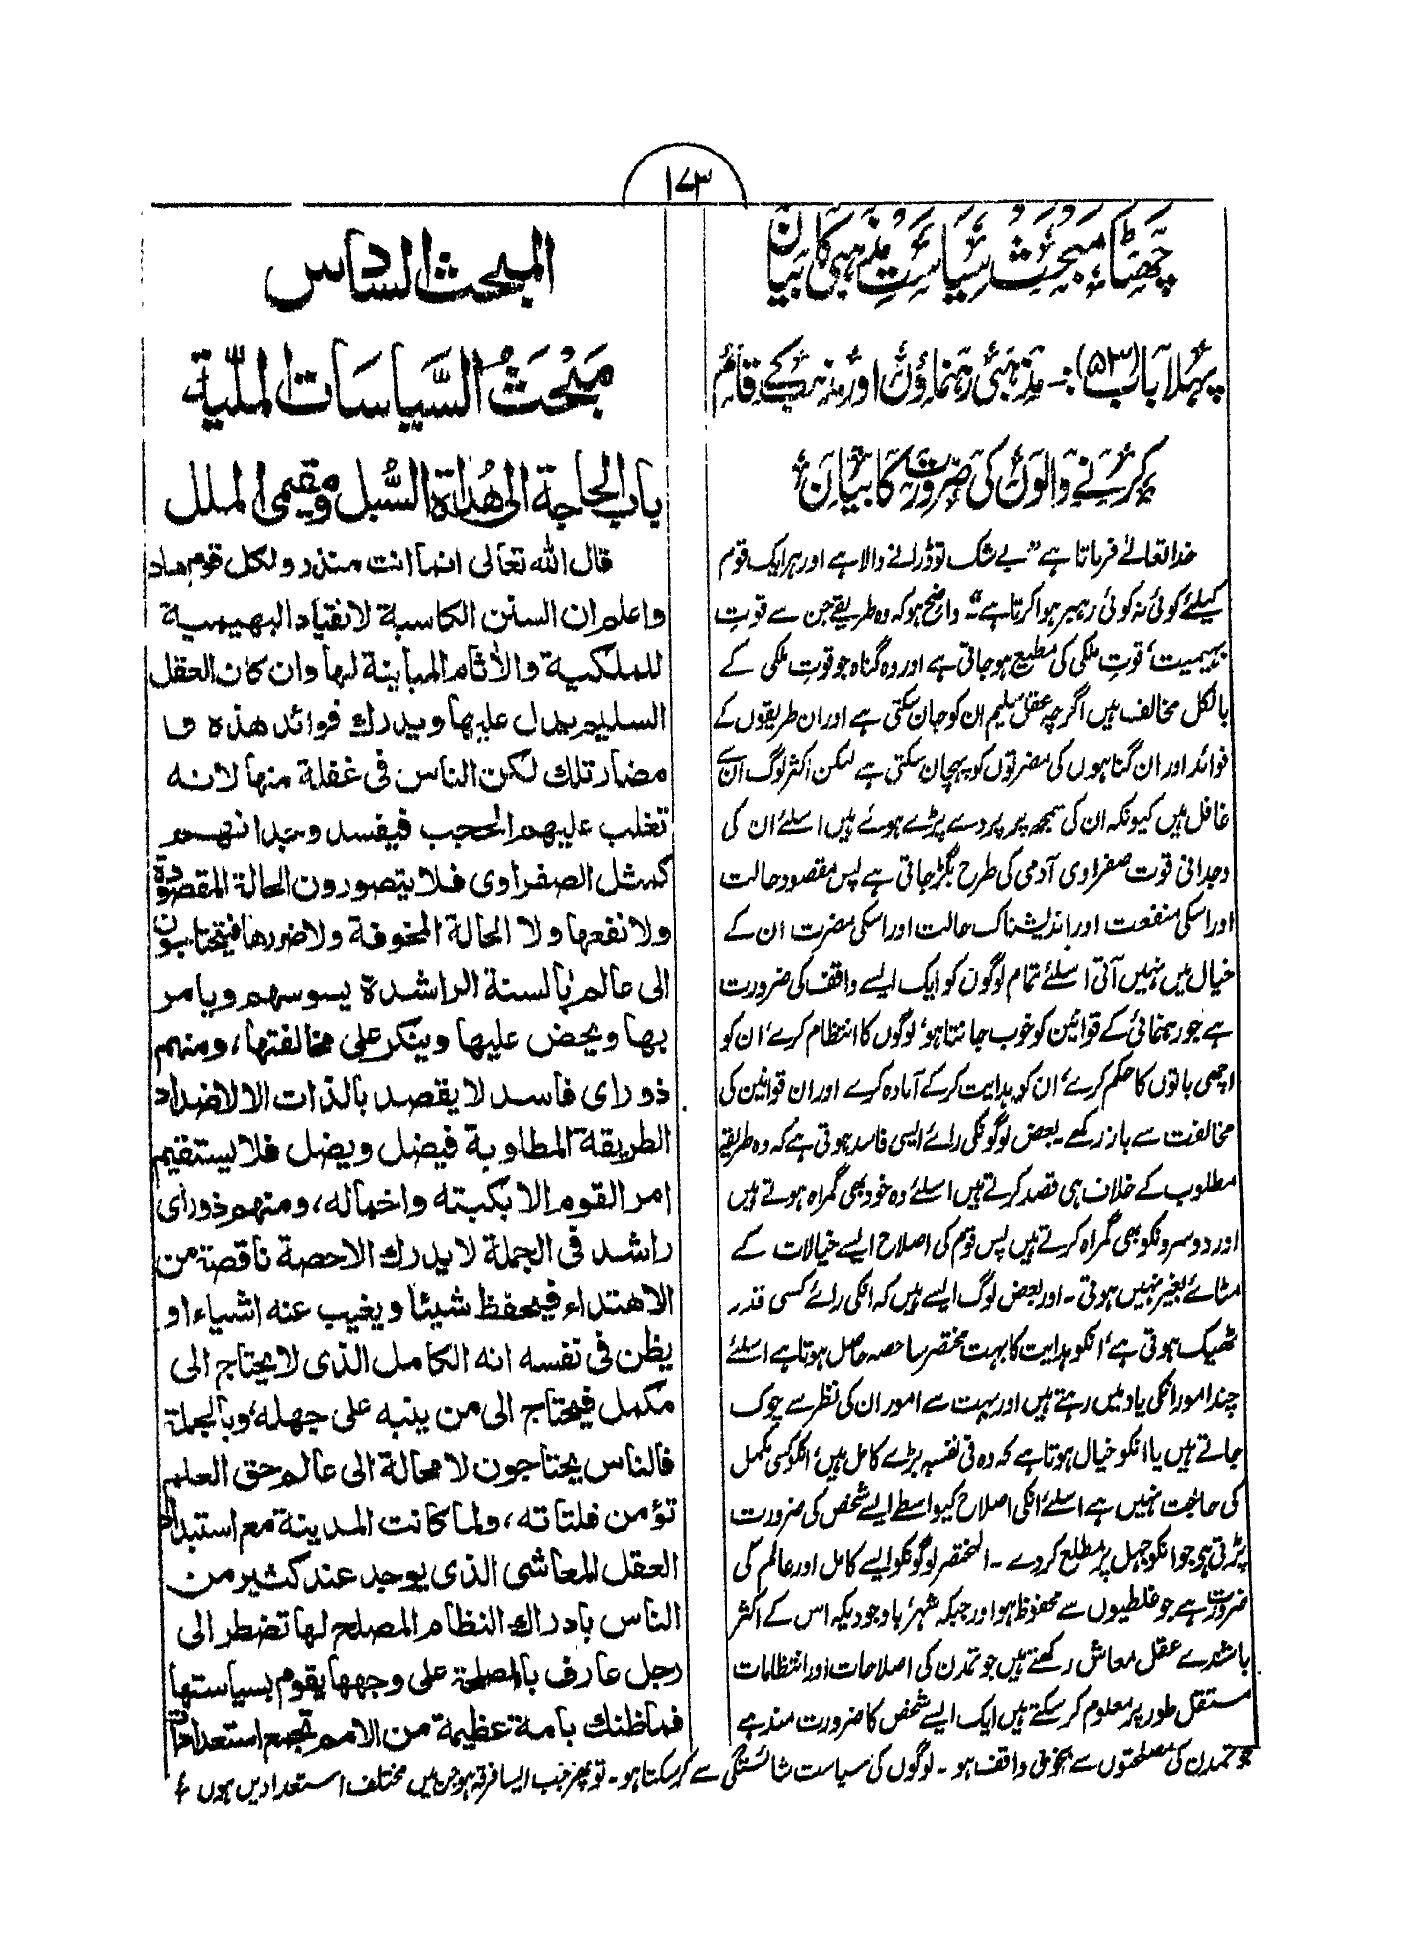 ۱۷۳
چھٹا مبحث سیاست مذہبی کا بیان
پہلا باب (۵۳) :- مذہبی رہنماؤں اور مذہب کے قائم
کرنے والوں کی ضرورت کا بیان
خدا تعالےٰ فرماتا ہے "بے شک تو ڈرانے والا ہے اور ہر ایک قوم
کیلئے کوئی نہ کوئی رہبر ہوا کرتا ہے"۔ واضح ہو کہ وہ طریقے جن سے قوتِ
بہیمیت، قوتِ ملکی کی مطیع ہو جاتی ہے اور وہ گناہ جو قوتِ ملکی کے
بالکل مخالف ہیں اگرچہ عقل سلیم ان کو جان سکتی ہے اور ان طریقوں کے
فوائد اور ان گناہوں کی مضرتوں کو پہچان سکتی ہے لیکن اکثر لوگ ان سے
غافل ہیں کیونکہ ان کی سمجھ پر پردے پڑے ہوئے ہیں اسلئے ان کی
وجدانی قوت صفراوی آدمی کی طرح بگڑ جاتی ہے پس مقصود حالت
اور اسکی منفعت اور اندیشناک حالت اور اسکی مضرت ان کے
خیال میں نہیں آتی اسلئے تمام لوگوں کو ایک ایسے واقف کی ضرورت
ہے جو رہنمائی کے قوانین کو خوب جانتا ہو، لوگوں کا انتظام کرے، ان کو
اچھی باتوں کا حکم کرے، ان کو ہدایت کر کے آمادہ کرے اور ان قوانین کی
مخالفت سے باز رکھے۔ بعض لوگونکی رائے ایسی فاسد ہوتی ہے کہ وہ طریقہ
مطلوب کے خلاف ہی قصد کرتے ہیں اسلئے وہ خود بھی گمراہ ہوتے ہیں
اور دوسرونکو بھی گمراہ کرتے ہیں پس قوم کی اصلاح ایسے خیالات کے
مٹائے بغیر نہیں ہوتی۔ اور بعض لوگ ایسے ہیں کہ انکی رائے کسی قدر
ٹھیک ہوتی ہے، انکو ہدایت کا بہت مختصر سا حصہ حاصل ہوتا ہے اسلئے
چند امور انکی یاد میں رہتے ہیں اور بہت سے امور ان کی نظر سے چوک
جاتے ہیں یا انکو خیال ہوتا ہے کہ وہ فی نفسہ بڑے کامل ہیں، انکو کسی مکمل
کی حاجت نہیں ہے اسلئے انکی اصلاح کیواسطے ایسے شخص کی ضرورت
پڑتی ہی جو انکو جہل پر مطلع کر دے۔ المختصر لوگونکو ایسے کامل اور عالم کی
ضرورت ہے جو غلطیوں سے محفوظ ہو اور جبکہ شہر باوجودیکہ اس کے اکثر
باشندے عقل معاش رکھتے ہیں جو تمدن کی اصلاحات اور انتظامات
مستقل طور پر معلوم کر سکتے ہیں ایک ایسے شخص کا ضرورت مند ہے
جو تمدن کی مصلحتوں سے بخوبی واقف ہو۔ لوگوں کی سیاست شائستگی سے کر سکتا ہو۔ تو پھر جب ایسا فرقہ ہو جن میں مختلف استعدادیں ہوں
المبحث السادس
مَبْحَثُ السَّیاسَاتِ الملّیة
باب الحاجة الی هُداة السُّبل ومقیمی الملل
قال الله تعالی انما انت منذر ولکل قوم هاد
واعلم ان السنن الکاسبة لانقیاد البهیمیة
للملکیة والأثام المباینة لها وان کان العقل
السلیم یدل علیها ویدرك فوائد هذه و
مضار تلك لکن الناس فی غفلة منها لانه
تغلب علیهم الحجب فیفسد وجدانهم
کمثل الصفراوی فلا یتصورون الحالة المقصودة
ولا نفعها ولا الحالة المخوفة ولا ضررها فیحتاجون
الی عالم بالسنة الراشدة یسوسهم ویامر
بها ویحض علیها وینکر علی مخالفتها، ومنهم
ذو رای فاسد لا یقصد بالذات الا لاضداد
الطریقة المطلوبة فیضل ویضل فلا یستقیم
امر القوم الا بکبته واخماله، ومنهم ذو رای
راشد فی الجملة لا یدرك الا حصة ناقصة من
الاهتداء فیحفظ شیئا ویغیب عنه اشیاء او
یظن فی نفسه انه الکامل الذی لا یحتاج الی
مکمل فیحتاج الی من ینبه علی جهله، وبالجملة
فالناس یحتاجون لا محالة الی عالم حق العلم
تؤمن فلتاته، ولما کانت المدینة مع استبداد
العقل المعاشی الذی یوجد عند کثیر من
الناس بادراك النظام المصلح لها تضطر الی
رجل عارف بالمصلحة علی وجهها یقوم بسیاستها
فما ظنك بامة عظیمة من الامم تجمع استعدادات